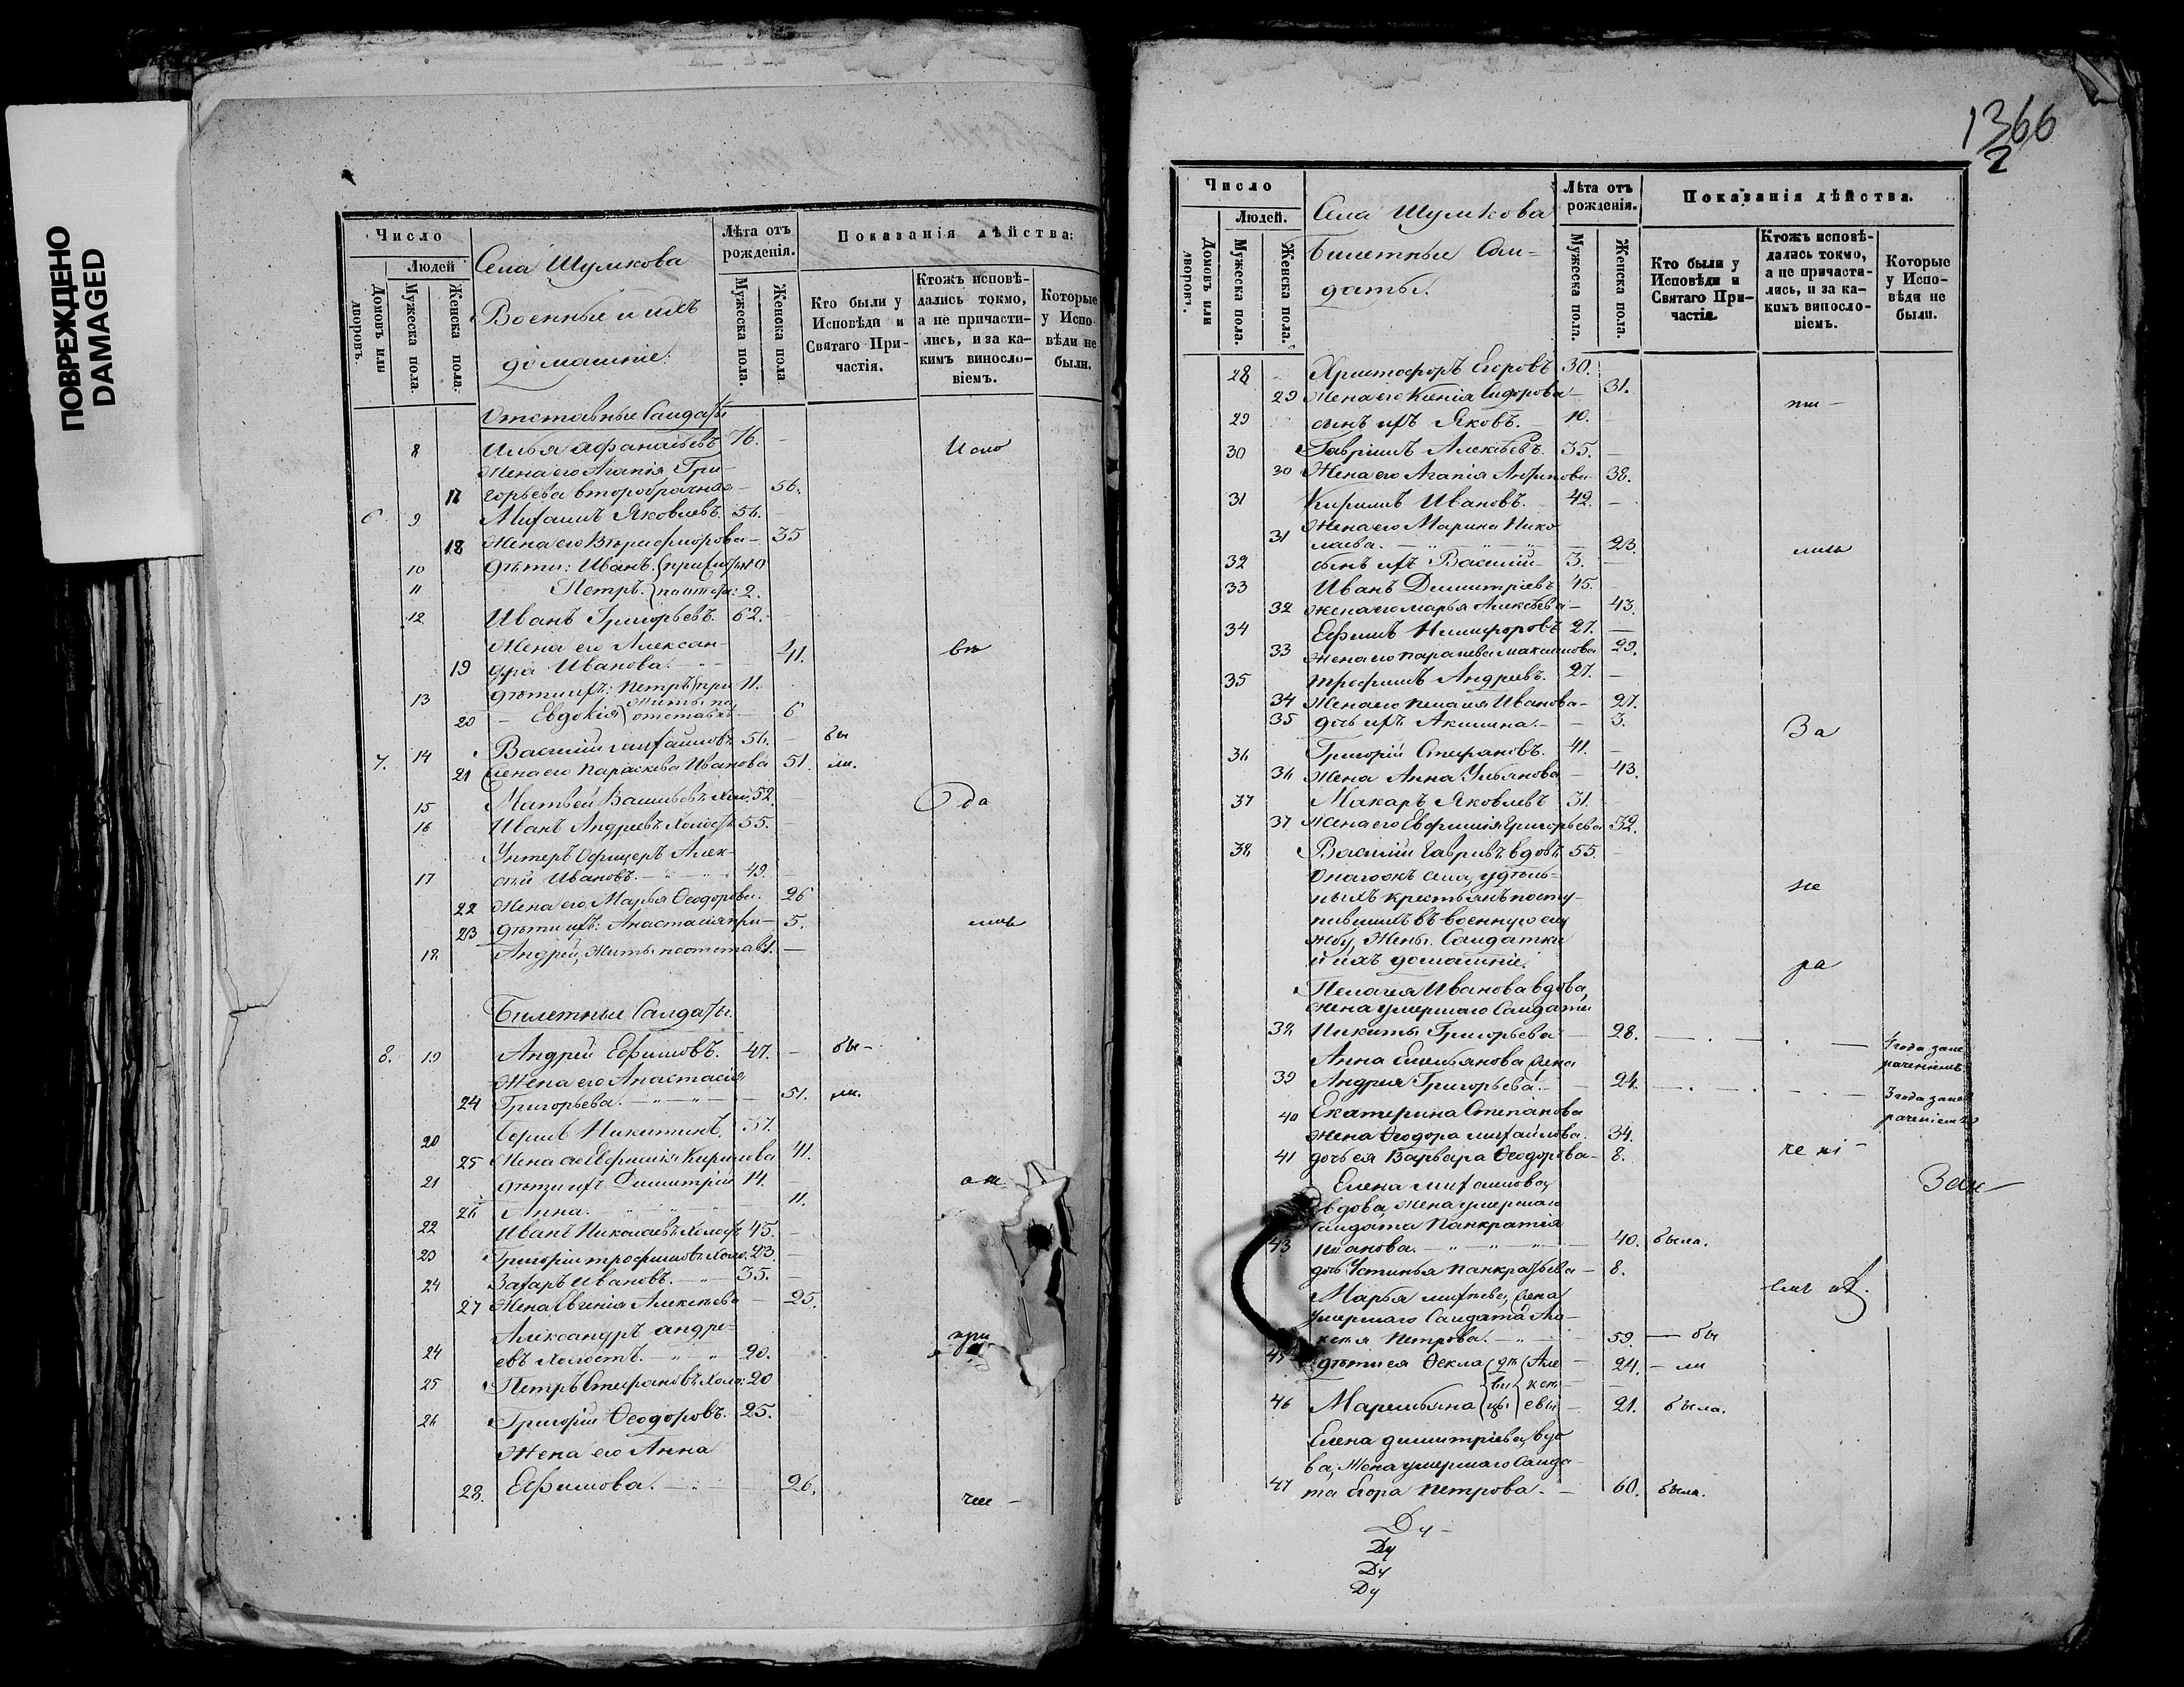 ПОВРЕЖДЕНО
DAMAGED
Число
Людей
Домовъ или дворовъ.
Мужеска пола
Женска пола.
Села Шумкова
Военные и ихъ
домашніе.
Лѣта отъ рожденія.
Мужеска пола.
Женска пола
Показанія дѣйства:
Кто были у Исповѣди и Святаго Причастія.
Ктожъ исповѣдались токмо, а не причастились, и за какимъ винословіемъ.
Которые у Исповѣди не были.
Отставные Солдаты
8 Илья Афанасьевъ 76. — Испо
Жена его Агапія Гри-
17 горьева второбрачная — 56.
6 9 Михаилъ Яковлевъ. 56. —
18 Жена его — 35
10 Дѣти: Иванъ. 10
11 Петръ. 2.
12 Иванъ Григорьевъ. 62. —
Жена его Алексан-
19 дра Иванова. — 41. вѣ
13 дѣти ихъ: Петръ при 11.
20 — Евдокія отставкѣ — 6
7. 14 Василій Михайловъ 56. — бы
21 Жена его Параскева Иванова 51. ли.
15 Матвей Васильевъ Хол. 52. да
16 Иванъ Андреевъ Холостъ 55. —
Унтеръ Офицеръ Алек-
17 сѣй Ивановъ. — 49. —
22 Жена его, Марья Ѳеодорова. 26
23 дѣти ихъ: Анастасія при — 5. лись
18 Андрей, житъ по отставк. 1. —
Билетные Солдаты.
8. 19 Андрей Ефимовъ. 47. — бы —
Жена его Анастасія
24 Григорьева. — 51. ли.
20 Никитинъ. 37.
25 Жена его Евфимія Кирилова 41.
21 дѣти ихъ Димитрій 14. — а не
26 Анна. — 11.
22 Иванъ Николаевъ Холостъ 45. —
23 Григорій Трофимовъ Холо. 23. —
24 Захаръ Ивановъ. — 35. —
27 Жена Евгенія Алексѣева — 25.
Александръ Андре-
24 евъ холостъ. — 20. при
25 Петръ Стефановъ Холо: 20
26 Григорій Ѳеодоровъ. 25.
Жена его Анна
28. Ефимова. — 26. —
1366
2
Число
Людей.
Домовъ или дворовъ.
Мужеска пола.
Женска пола.
Села Шумкова
Билетные Сол-
даты.
Лѣта отъ рожденія.
Мужеска пола.
Женска пола.
Показанія дѣйства.
Кто были у Исповѣди и Святаго Причастія.
Ктожъ исповѣдались токмо, а не причастились, и за какимъ винословіемъ.
Которые у Исповѣди не были.
28 Христофоръ Егоровъ 30.
29 Жена его Ксенія Сидорова — 31.
29 сынъ ихъ Яковъ. 10.
30 Гавріилъ Алексѣевъ. 35. —
30 Жена его Агапія 38.
31 Кирилъ Ивановъ. 42. —
Жена его Марина Нико
31 лаева. — 23. лись
32 сынъ ихъ Василій — 3. —
33 Иванъ Димитріевъ 45. —
32 жена его Марья Алексѣева — 43.
34 Ефимъ Никифоровъ 27. —
33 Жена его Парасева Максимова 29.
35 Трофимъ Андреевъ. 27. —
34 Жена его Пелагія Иванова — 27.
35 дочь ихъ Акилина. — 3. За
36 Григорій Стефановъ. 41. —
36 Жена Анна Ульянова — 43.
37 Макаръ Яковлевъ 31. —
37 Жена его Евфимія Григорьева 32.
38 Василій Гаврилъ вдовъ 55. —
Онагожъ села, удѣль-
ныхъ крестьянъ посту- не
пившихъ въ военную слу
жбу, Жены Солдатки
и ихъ домашніе. ра
Пелагея Иванова вдова,
жена умершаго Солдата
38 Никиты Григорьева — 28. — 4 года за не
раченіемъ.
Анна Емельянова жена
39 Андрея Григорьева. — 24. — 3 года за не
раченіемъ
40 Екатерина Степанова
жена Ѳеодора Михайлова. 34.
41 дочь ея Варвара Ѳеодорова — 8. чені —
Елена Михайлова,
вдова, жена умершаго
Солдата Панкратія
43 Иванова. — 40. была.
дочь Устинья Панкратьева — 8.
Марья жена емъ ихъ.
умершаго Солдата Але-
ксѣя Петрова. — 59. — бы
45 дѣти ея Ѳекла дѣ Але — 24. — ли
ви ксѣ —
46 Маремьяна цы евы — 21. была.
Елена Димитріева, вдо
ва, Жена умершаго Солда-
47 та Егора Петрова. — 60. была.
Ду —
Ду
Ду
Ду